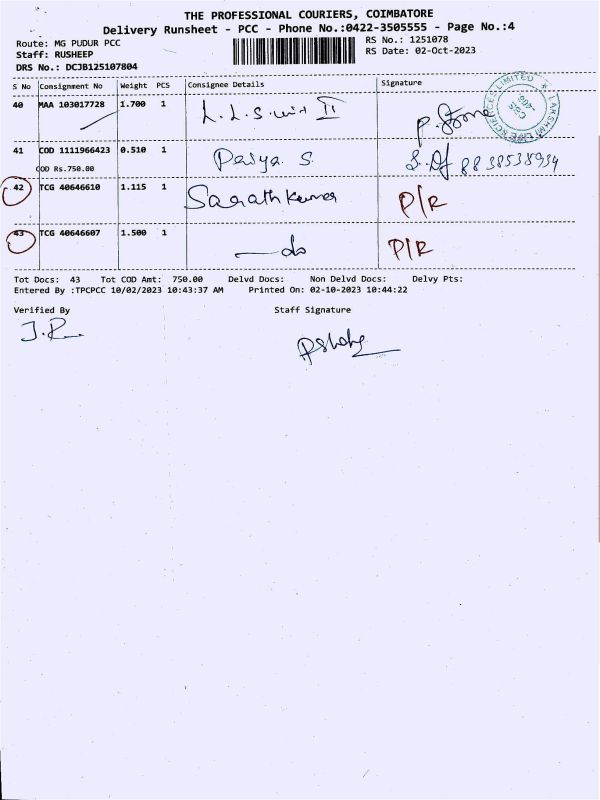 THE PROFESSIONAL COURIERS, COIMBATORE
Delivery Runsheet - PCC - Phone No.:0422-3505555 - Page No.:4
Route: MG PUDUR PCC RS No.: 1251078
Staff: RUSHEEP RS Date: 02-Oct-2023
DRS No.: DCJB125107804
S No Consignment No Weight PCS Consignee Details Signature
40 MAA 103017728 1.700 1 L.L.S. unit II
41 COD 1111966423 0.510 1 Daiya. S
COD Rs.750.00
42 TCG 40646610 1.115 1 Sarathkumar P/R
43 TCG 40646607 1.500 1 — do P/R
Tot Docs: 43 Tot COD Amt: 750.00 Delvd Docs: Non Delvd Docs: Delvy Pts:
Entered By :TPCPCC 10/02/2023 10:43:37 AM Printed On: 02-10-2023 10:44:22
Verified By Staff Signature